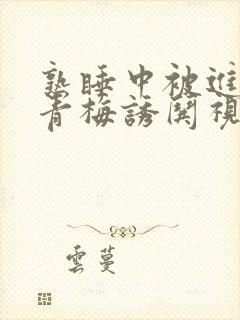 熟睡中被進
青梅誘関視
雲蔓